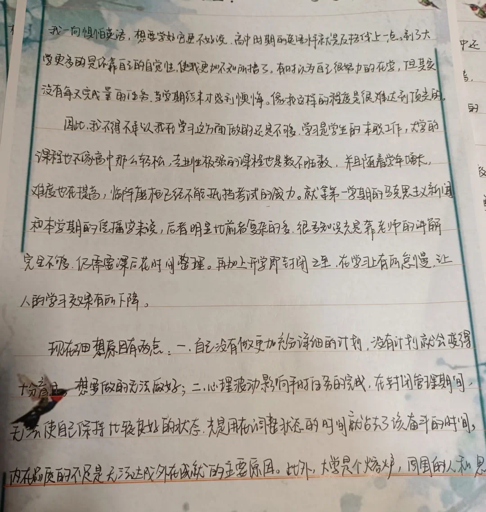 我一向惧怕英语，想要学好它更不好说，高中时期的英语样样就是反扣上一点，到了大
学更多的是依靠自己的自觉性，使我更加不知所措了。有时以为自己很努力的在学，但其实
没有每天完成量的任务，当学期结束才感到懊悔，像我这样的程度是很难达到顶点的。
因此，我不得不承认我在学习这方面做的还是不够，学习是学生的本职工作，大学的
课程也不像高中那么轻松，专业性极强的课程也是数不胜数，并且随着学年增长，
难度也在提高，临阵磨枪已经不能抵挡考试的威力。就拿第一学期的马克思主义新闻
和本学期的传播学来说，后者明显比前者复杂的多，很多知识光是靠老师的讲解
完全不够，仍需要课后花时间整理。再加上开学即封闭之至，在学习上有所怠慢，让
人的学习效果有所下降。
现在细想原因有两点：一、自己没有做更加充分详细的计划，没有计划就会变得
十分盲目，想要做的无法做好；二、心理波动影响平时任务的完成，在封闭管理期间，
无法使自己保持比较良好的状态，光是用在调整状态的时间就占去了该奋斗的时间，
内在品质的不足是无法达成外在成就的主要原因。此外，大学是个熔炉，周围的人和